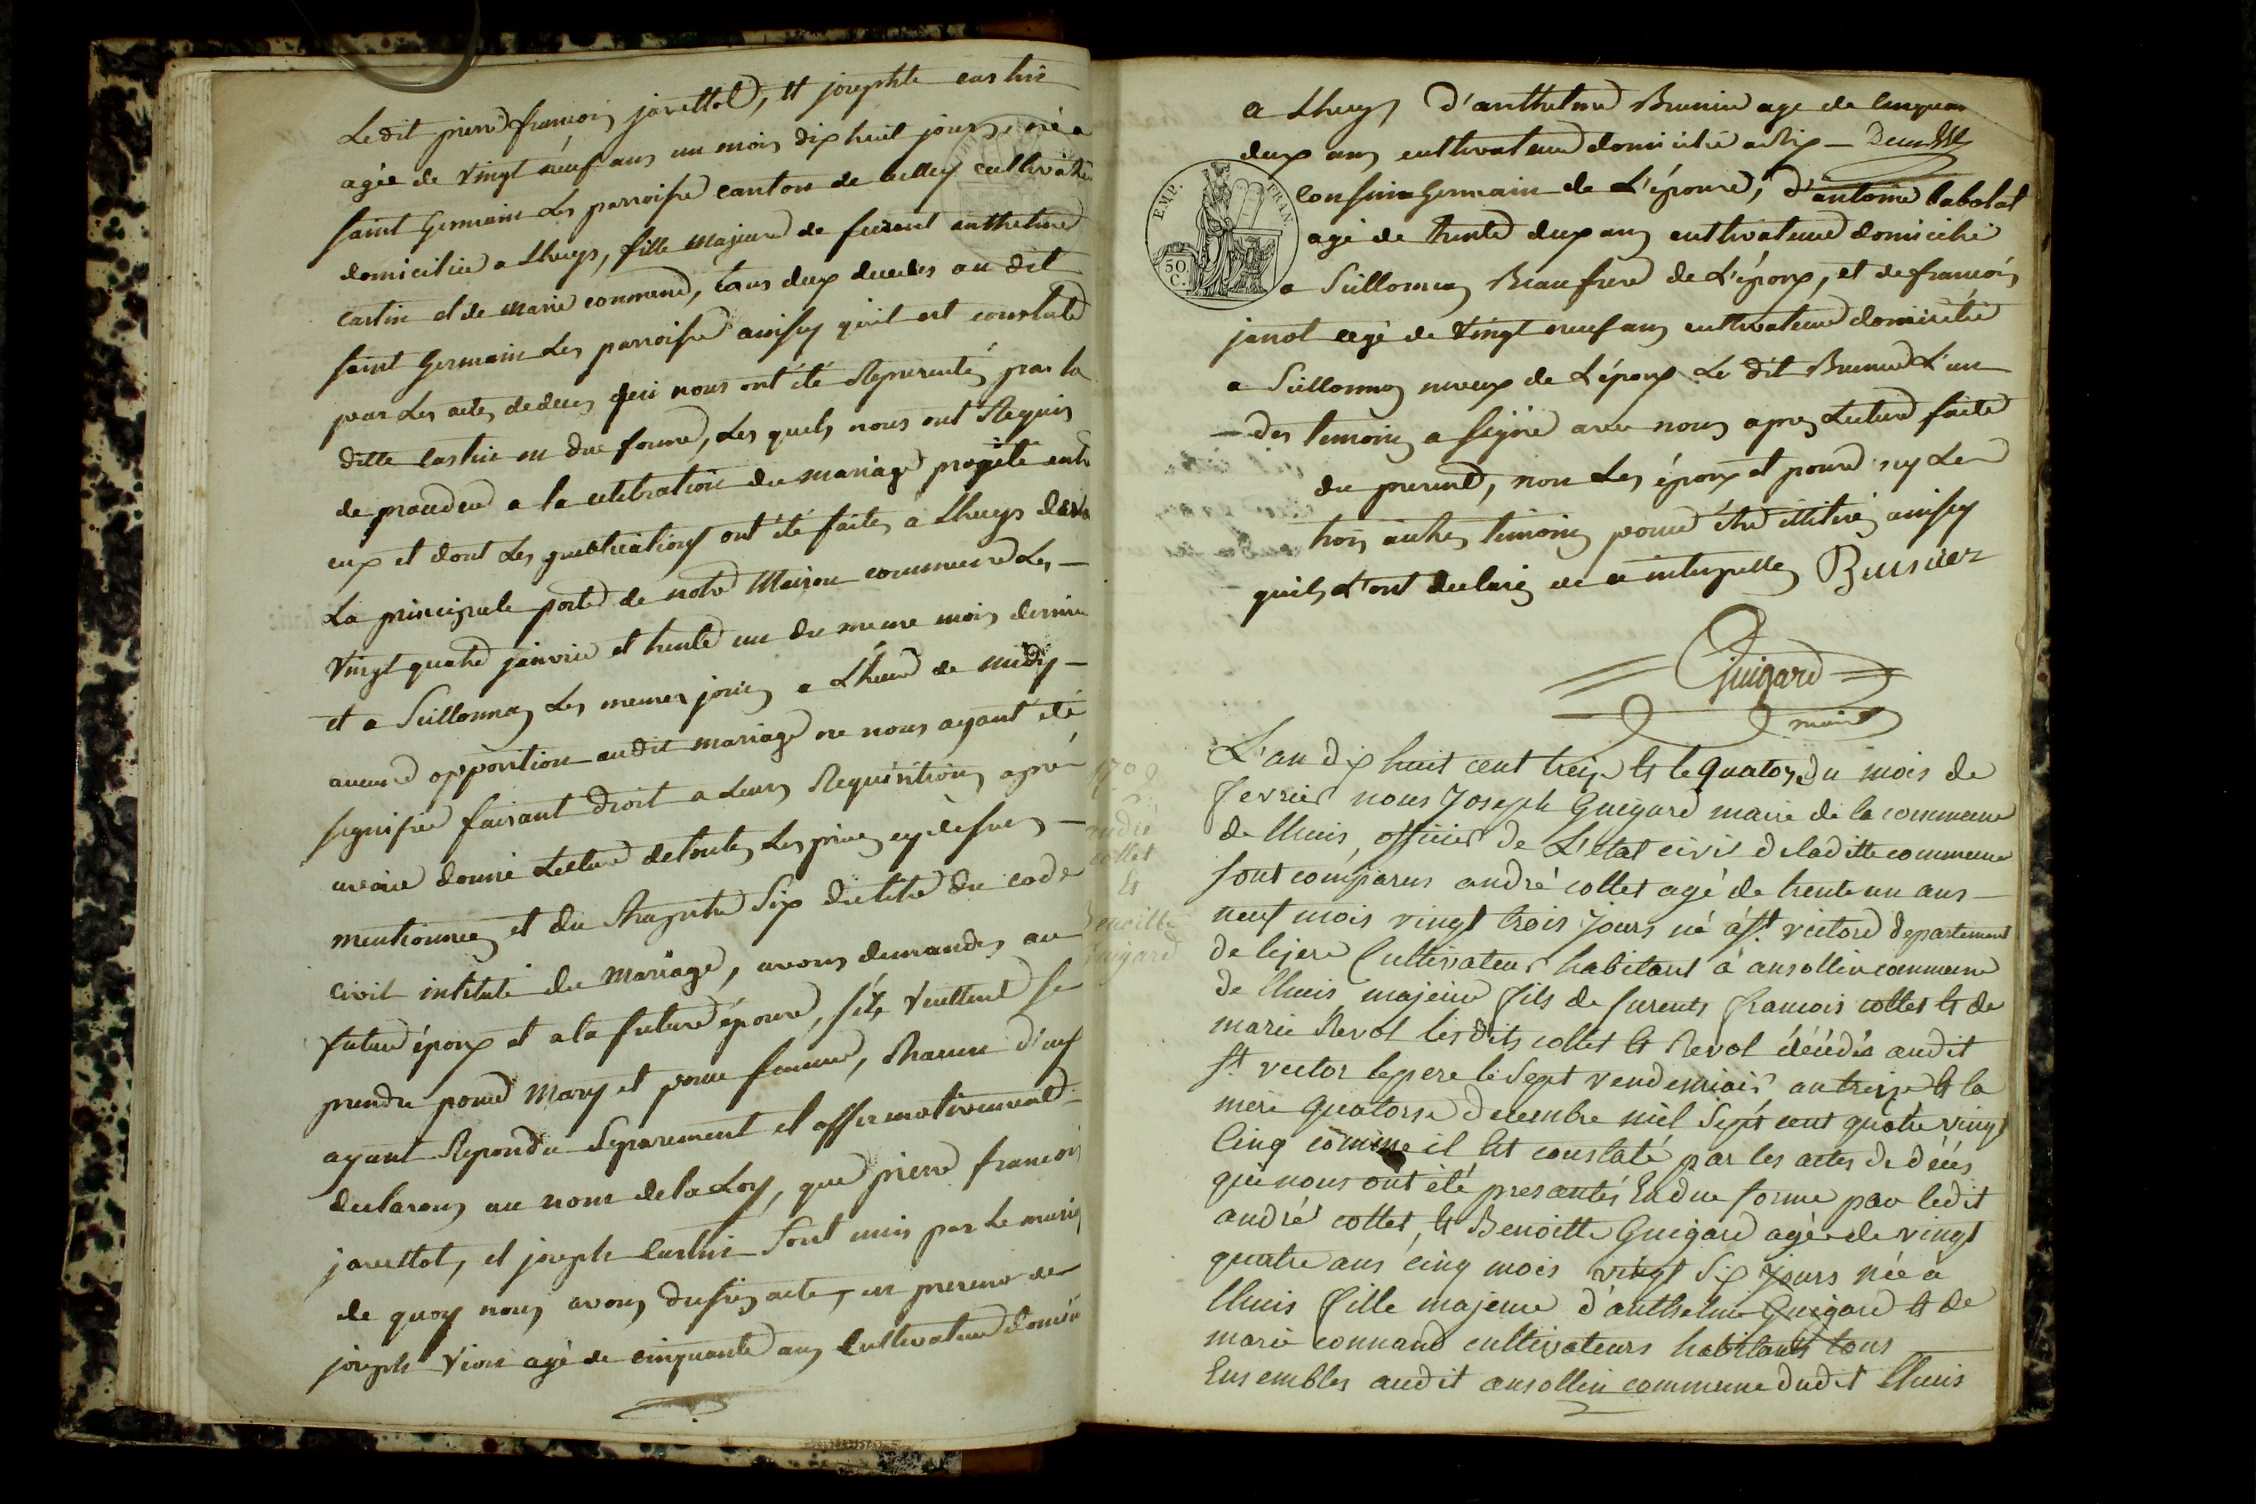 Le dit pierre francois jarettot, et josephte castin
agée de vingt neuf ans un mois dix huit jours, née a
saint Germain Les parroisse canton de belley cultivatrice
domiciliée a Lhuys, fille majeure de feürent anthelme
castin et de marie connand, tous deux decedes au dit
saint Germain Les parroisse ainsÿ quil est constaté
par les actes de deces qui nous ont été Representés par la
ditte castin en due forme, Les quels nous ont Requis
de proceder a la celebration du mariage projeté entr
eux et dont Les publications ont été faites a Lhuys devan
La principale porte de notre Maison commune Les
vingt quatre janvier et trente un du meme mois dernier
et a Seillonnaz Les memes jours a L'heure de midy
aucune opposition audit mariage ne nous ayant été
signifiée faisant droit a Leurs Requisitions après
avoir donné Lecture de toutes Les pieces cy dessus
mentionnees et du Chapitre Six du titre du code
civil intitulé du Mariage, avons demandés au
futur époux et a la future épouse, s'ils veullent se
prendre pour Mary et pour femme, chacun d'eux
ayant Repondu Separement et affirmativement
declarons au nom de la Loy, que pierre francois
jarettot, et joseph Castin Sont unis par Le mariage
de quoy nous avons dressés acte, en presence de
joseph Vion agé de cinquante ans Cultivateur domicilié
a Lhuys, d'anthelme Brunier age de cinquan
deux ans cultivateur domicilié a Lhuys
EMP. FRAN.
50 C.
Cousin Germain de L'épouse, d'antoine labolat
agé de trente deux ans cultivateur domicilié
a Seillonnaz Beaufrere de L'époux, et de francois
janot agé de vingt neuf ans cultivateur domicilié
a Seillonnaz neveux de L'époux Le dit Brunier L'un
des temoins a signé avec nous apres Lecture faite
du present, non Les époux et pouse ny Les
trois autres temoins pour être illitiré ainsy
quils L'ont declarés de ce interpellés Brunier
Guigard
maire
L'an dix huit cent treize et le quatorze du mois de
fevrier nous Joseph Guigard maire de la commune
de lhuis, officier de L'état civil de laditte commune
sont comparus andré collet agé de trente un ans
neuf mois vingt trois jours né à St. victord departement
de lisere Cultivateur habitant à ansollin commune
de lhuis majeure fils de furents francois collet et de
marie Revol lesdits collet et Revol décédés audit
St. vector le pere le Sept vendemiair an treize et la
mere quatorse decembre mil Sept cent quatre vingt
Cinq comme il Est constaté par les actes de déces
qui nous ont été presantés En due forme par ledit
andré collet, Et Benoitte Guigard agée de vingt
quatre ans cinq mois vingt Six jours née à
lhuis fille majeure d'anthelme Guigard et de
marie connand cultivateurs habitants tous
Ensembles audit ansollin commune dudit lhuis
andré
collet
Et
Benoitte
Guigard